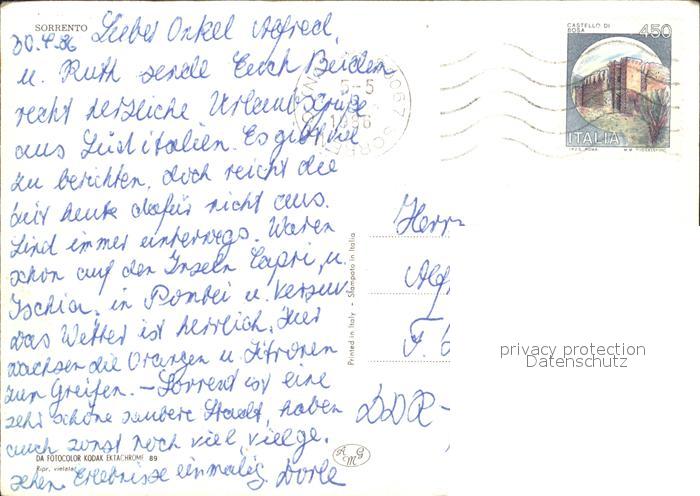 SORRENTO
30.4.86 Lieber Onkel Alfred,
u. Ruth sende Euch Beiden
recht herzliche Urlaubsgrüße
aus Süditalien. Es gibt viel
zu berichten, doch reicht die
Zeit heute dafür nicht aus.
Sind immer unterwegs. Waren
schon auf den Inseln Capri, u.
Ischia, in Pompei u. Vesuv.
Das Wetter ist herrlich, hier
wachsen die Orangen u. Zitronen
zum Greifen. – Sorrent ist eine
sehr schöne saubere Stadt, haben
auch sonst noch viel, viel ge-
sehen. Erlebnisse einmalig. Dorle
DA FOTOCOLOR KODAK EKTACHROME 89
Ripr. vietata
A M G
Printed in Italy - Stampato in Italia
5-5
1986
CASTELLO DI
BOSA
450
ITALIA
Herrn
Alf
DDR-
privacy protection
Datenschutz